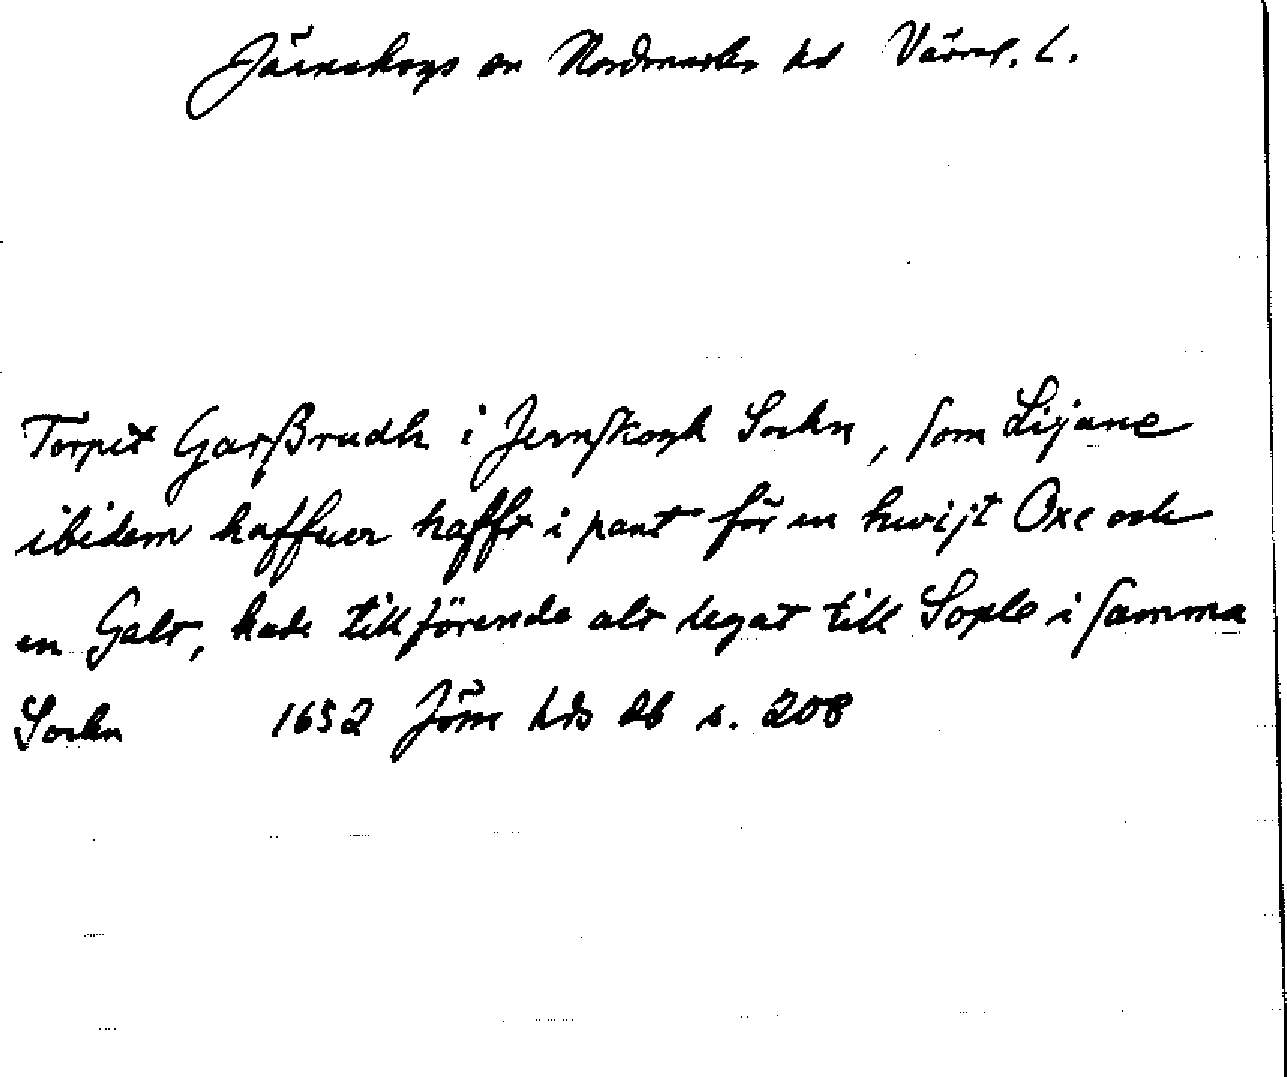 Järnskogs sn Nordmarks hd Värml. L.
Torpit Garßrudh i Jernskogh Sockn, som Lijane
ibidem haffuer hafft i pant för en hwijt Oxe och
en Galt, hade tillförende alt legat till Sople i samma
Sockn 1652 Jöse hds db s. 208